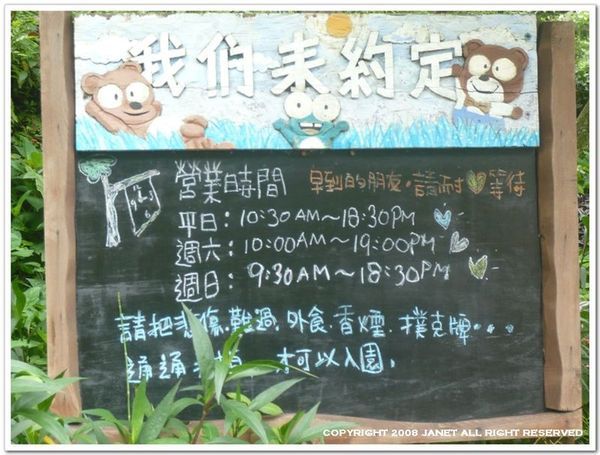 我们來約定
營業時間 早到的朋友,請耐心等待
平日:10:30AM~18:30PM
週六:10:00AM~19:00PM
週日:9:30AM~18:30PM
請把悲傷.難過.外食.香煙.撲克牌...
通通 才可以入園.
COPYRIGHT 2008 JANET ALL RIGHT RESERVED